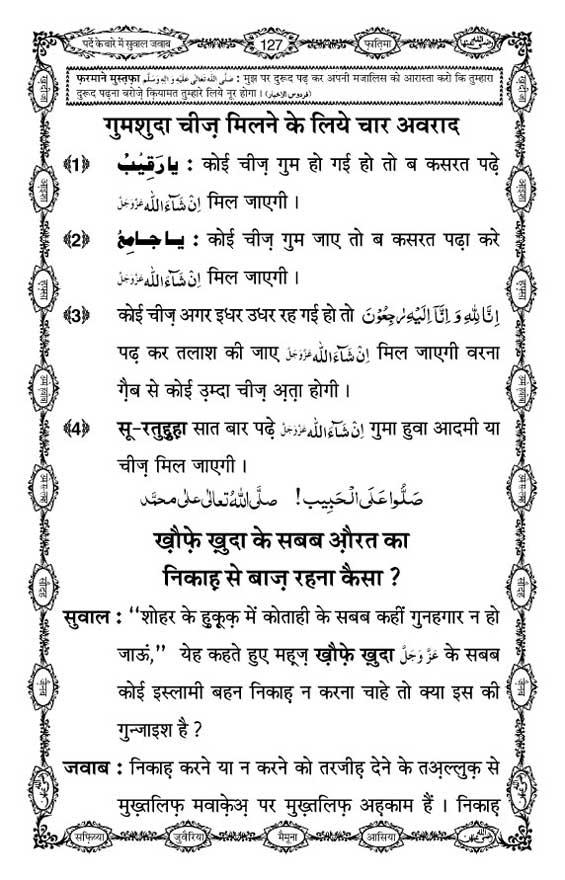 पर्दे के बारे में सुवाल जवाब 127 फ़ातिमा
फ़रमाने मुस्तफ़ा صَلَّى اللهُ تَعَالٰى عَلَيْهِ وَاٰلِهٖ وَسَلَّم : मुझ पर दुरूद पढ़ कर अपनी मजालिस को आरास्ता करो कि तुम्हारा
दुरूद पढ़ना बरोज़े क़ियामत तुम्हारे लिये नूर होगा । (فردوس الاخبار)
गुमशुदा चीज़ मिलने के लिये चार अवराद
﴾1﴿ يَا رَقِيْبُ : कोई चीज़ गुम हो गई हो तो ब कसरत पढ़े
اِنْ شَآءَ اللّٰه عَزَّوَجَلَّ मिल जाएगी ।
﴾2﴿ يَا جَامِعُ : कोई चीज़ गुम जाए तो ब कसरत पढ़ा करे
اِنْ شَآءَ اللّٰه عَزَّوَجَلَّ मिल जाएगी ।
﴾3﴿ कोई चीज़ अगर इधर उधर रह गई हो तो اِنَّا لِلّٰهِ وَ اِنَّاۤ اِلَيْهِ رٰجِعُوْنَ
पढ़ कर तलाश की जाए اِنْ شَآءَ اللّٰه عَزَّوَجَلَّ मिल जाएगी वरना
ग़ैब से कोई उ़म्दा चीज़ अ़त़ा होगी ।
﴾4﴿ सू-रतुद्दुह़ा सात बार पढ़े اِنْ شَآءَ اللّٰه عَزَّوَجَلَّ गुमा हुवा आदमी या
चीज़ मिल जाएगी ।
صَلُّوْا عَلَى الْحَبِيْب! صلَّى اللهُ تعالٰى علٰى محمَّد
ख़ौफ़े ख़ुदा के सबब औ़रत का
निकाह़ से बाज़ रहना कैसा ?
सुवाल : ‘‘शोहर के ह़ुक़ूक़ में कोताही के सबब कहीं गुनहगार न हो
जाऊं,’’ येह कहते हुए मह़्ज़ ख़ौफ़े ख़ुदा عَزَّ وَجَلَّ के सबब
कोई इस्लामी बहन निकाह़ न करना चाहे तो क्या इस की
गुन्जाइश है ?
जवाब : निकाह़ करने या न करने को तरजीह़ देने के तअ़ल्लुक़ से
मुख़्तलिफ़ मवाक़ेअ़ पर मुख़्तलिफ़ अह़काम हैं । निकाह़
सफ़िय्या जुवैरिया मैमूना आसिया